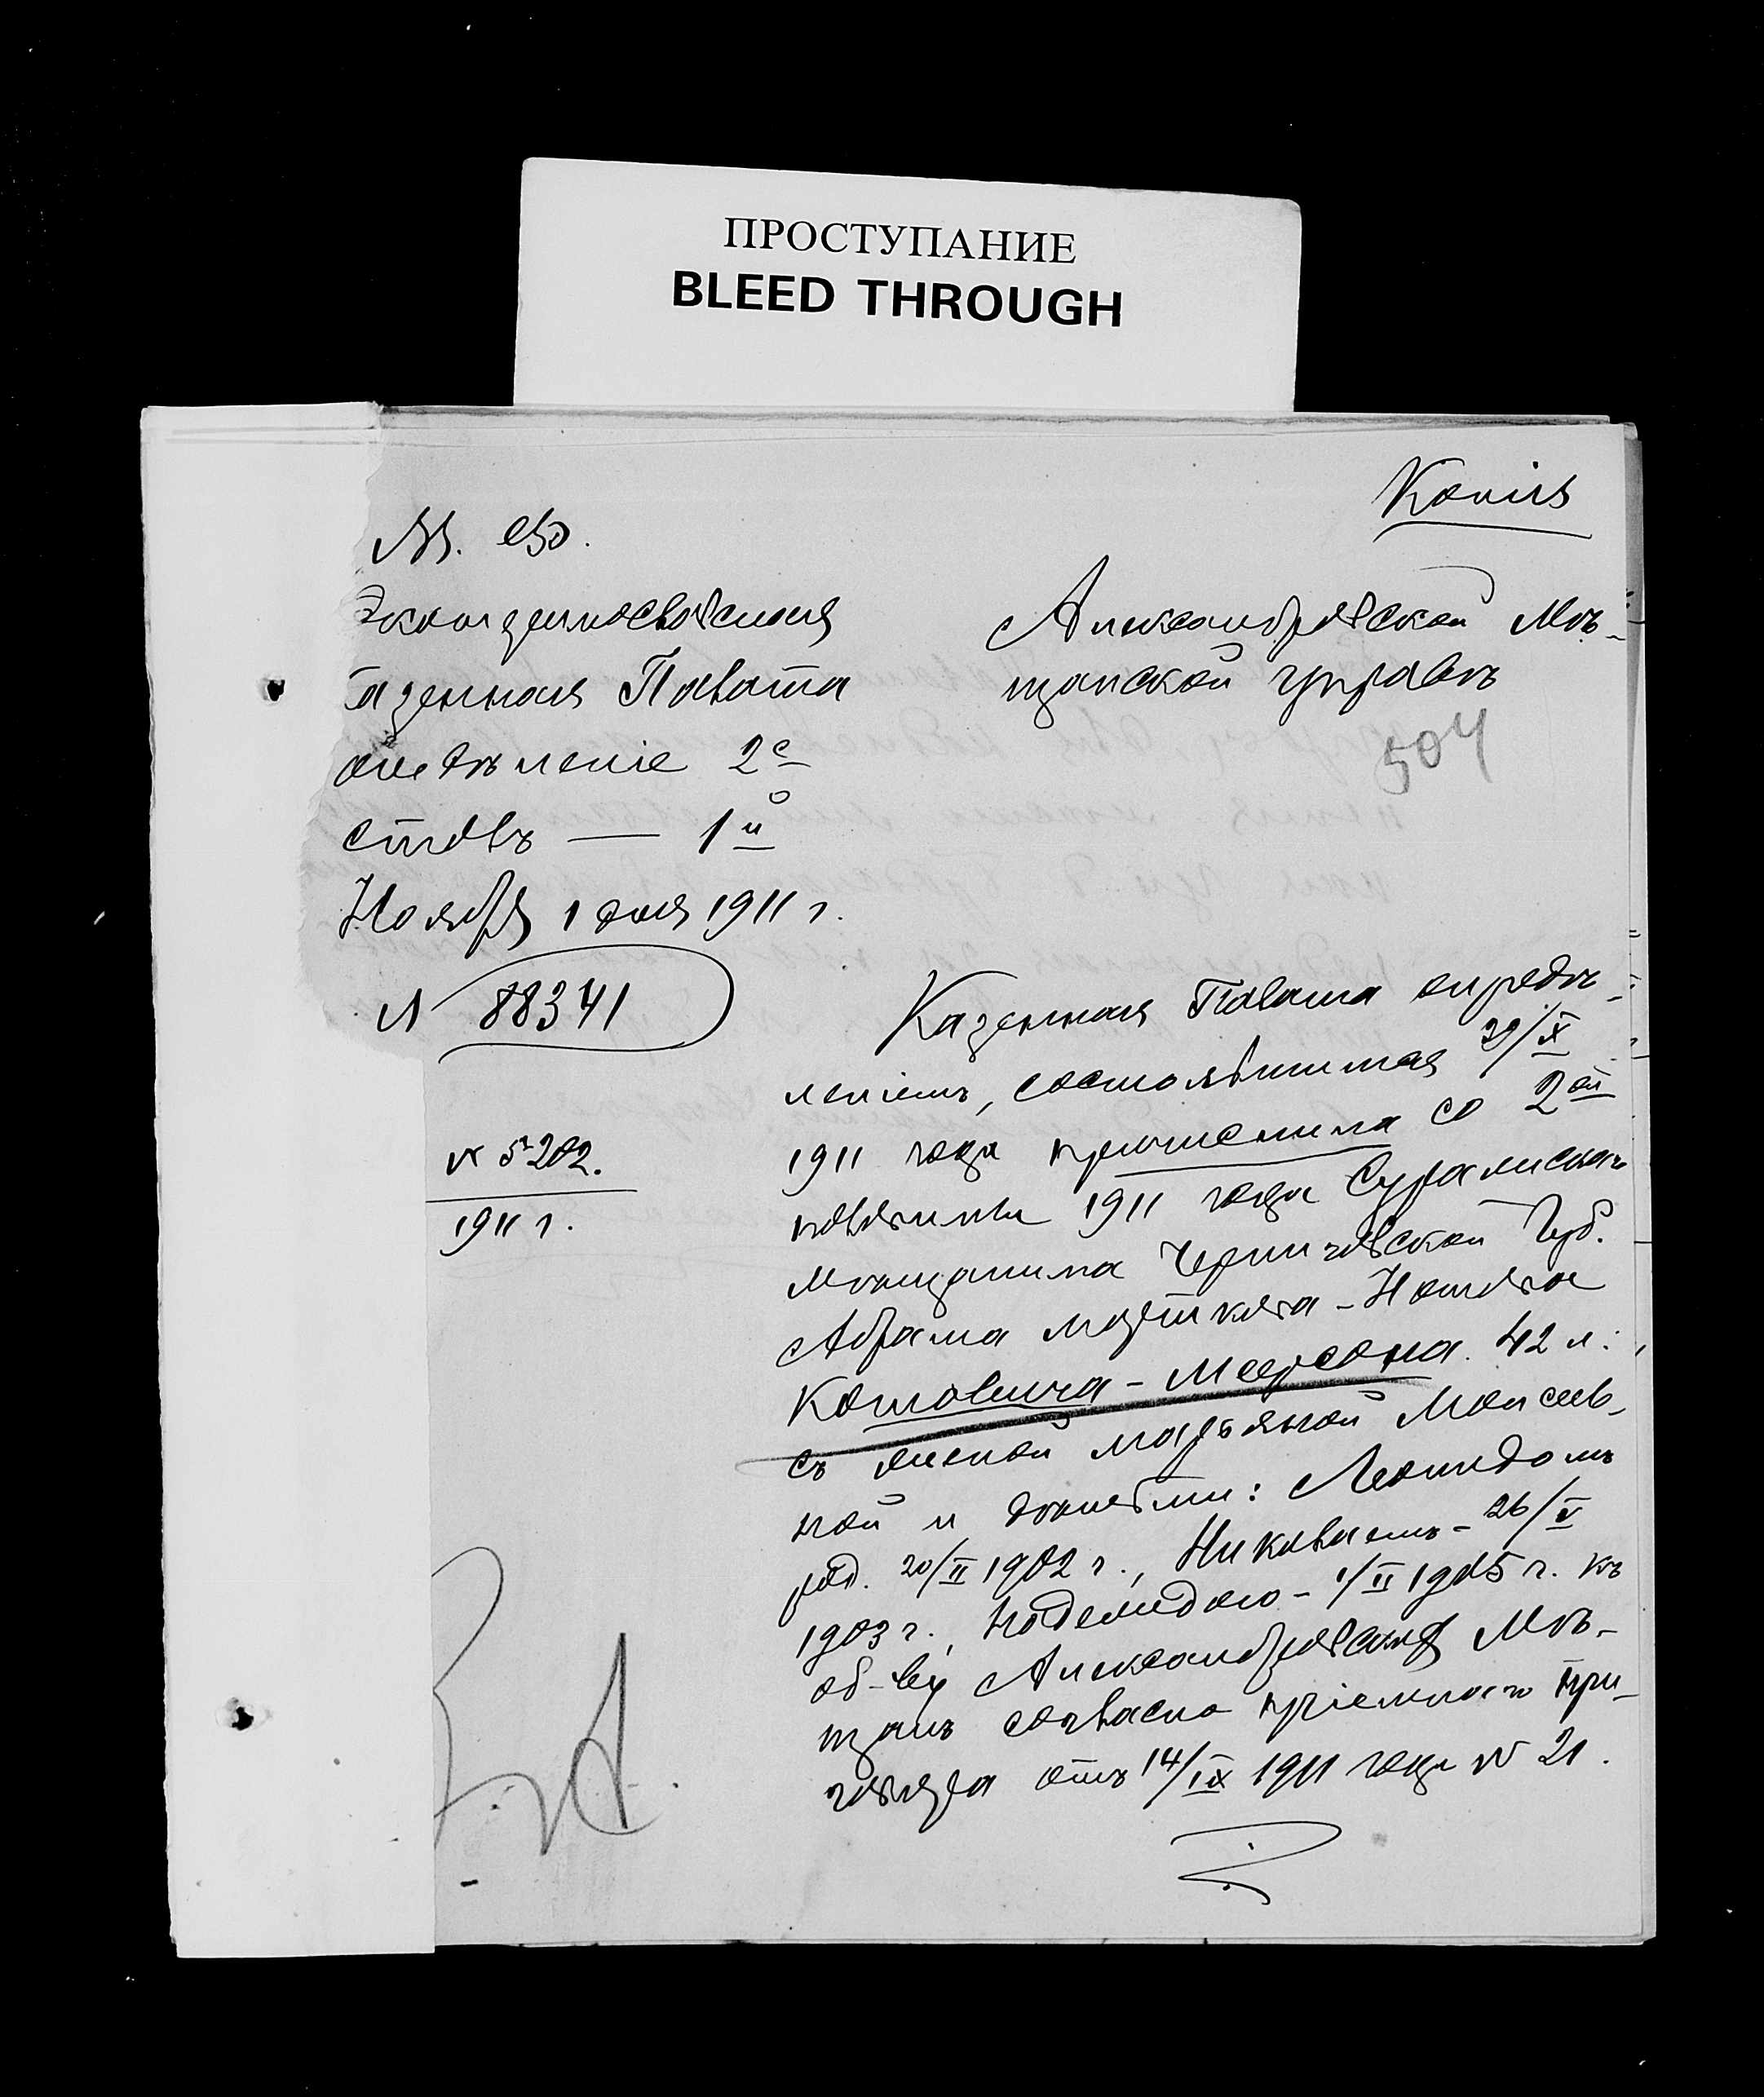 ПРОСТУПАНИЕ
BLEED THROUGH
Копія
М. Ф.
Екатеринославская
Казенная Палата
отдѣленіе 2е
столъ — 1й
Ноября 1 дня 1911 г.
№ 88341
№ 5202.
1911 г.
Александровской Мѣ-
щанской управѣ
504
Казенная Палата опредѣ-
леніемъ, состоявшимся 29/X
1911 года причислила со 2ой
половины 1911 года Суражскаго
мѣщанина Черниговской Губ.
Абрама Мортхеля-Нотова
Котовича-Меерсона 42 л.
съ женой Марьяной Моисеев-
ной и дѣтьми: Леонидомъ
род. 20/II 1902 г., Николаемъ - 26/V
1903 г., Надеждою - 1/II 1905 г. къ
об-ву Александровскихъ Мѣ-
щанъ согласно пріемнаго при-
говора отъ 14/IX 1911 года № 21.